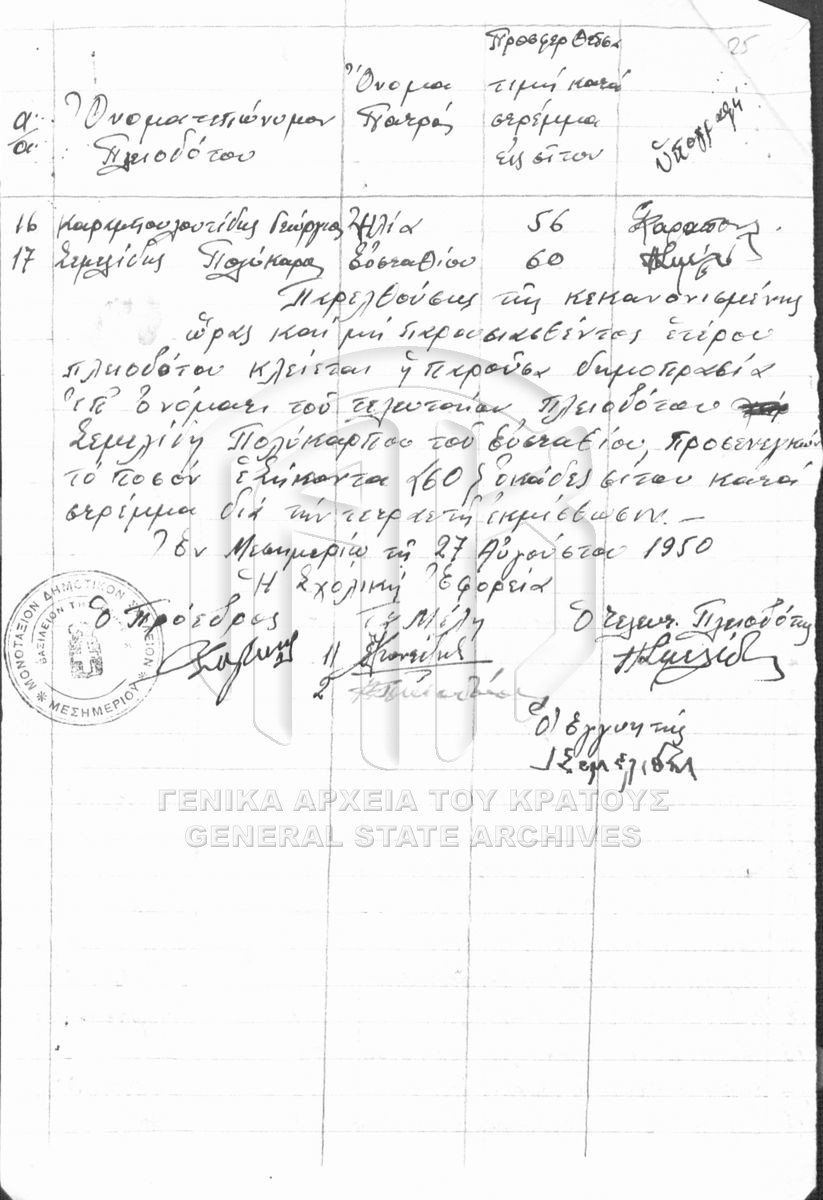 25
Προσφερθεῖσα
Ὄνομα τιμή κατά
α/α Ὀνοματεπώνυμον Πατρός στρέμμα Ὑπογραφή
Πλειοδότου εἰς σῖτον
16 Καραμπουλουτίδης Γεώργιος Ἠλία 56
17 Σεμελίδης Πολύκαρπ Εὐσταθίου 60
Παρελθούσης τῆς κεκανονισμένης
ὥρας καί μή παρουσιασθέντος ἑτέρου
πλειοδότου κλείεται ἡ παροῦσα δημοπρασία
ἐπ' ὀνόματι τοῦ τελευταίου πλειοδότου
Σεμελίδη Πολύκαρπου τοῦ Εὐσταθίου, προσενεγκών
τό ποσόν ἑξήκοντα (60) ὀκάδες σίτου κατά
στρέμμα διά τήν τετραετῆ ἐκμίσθωσιν. –
Ἐν Μεσημερίῳ τῇ 27 Αὐγούστου 1950
Ἡ Σχολική Ἐφορεία
Ὁ Πρόεδρος Τά Μέλη Ὁ τελευτ. Πλειοδότης
1)
2
Ὁ Ἐγγυητής
Σεμελίδης
ΜΟΝΟΤΑΞΙΟΝ ΔΗΜΟΤΙΚΟΝ ΣΧΟΛΕΙΟΝ
ΜΕΣΗΜΕΡΙΟΥ
ΒΑΣΙΛΕΙΟΝ ΤΗΣ
ΓΕΝΙΚΑ ΑΡΧΕΙΑ ΤΟΥ ΚΡΑΤΟΥΣ
GENERAL STATE ARCHIVES